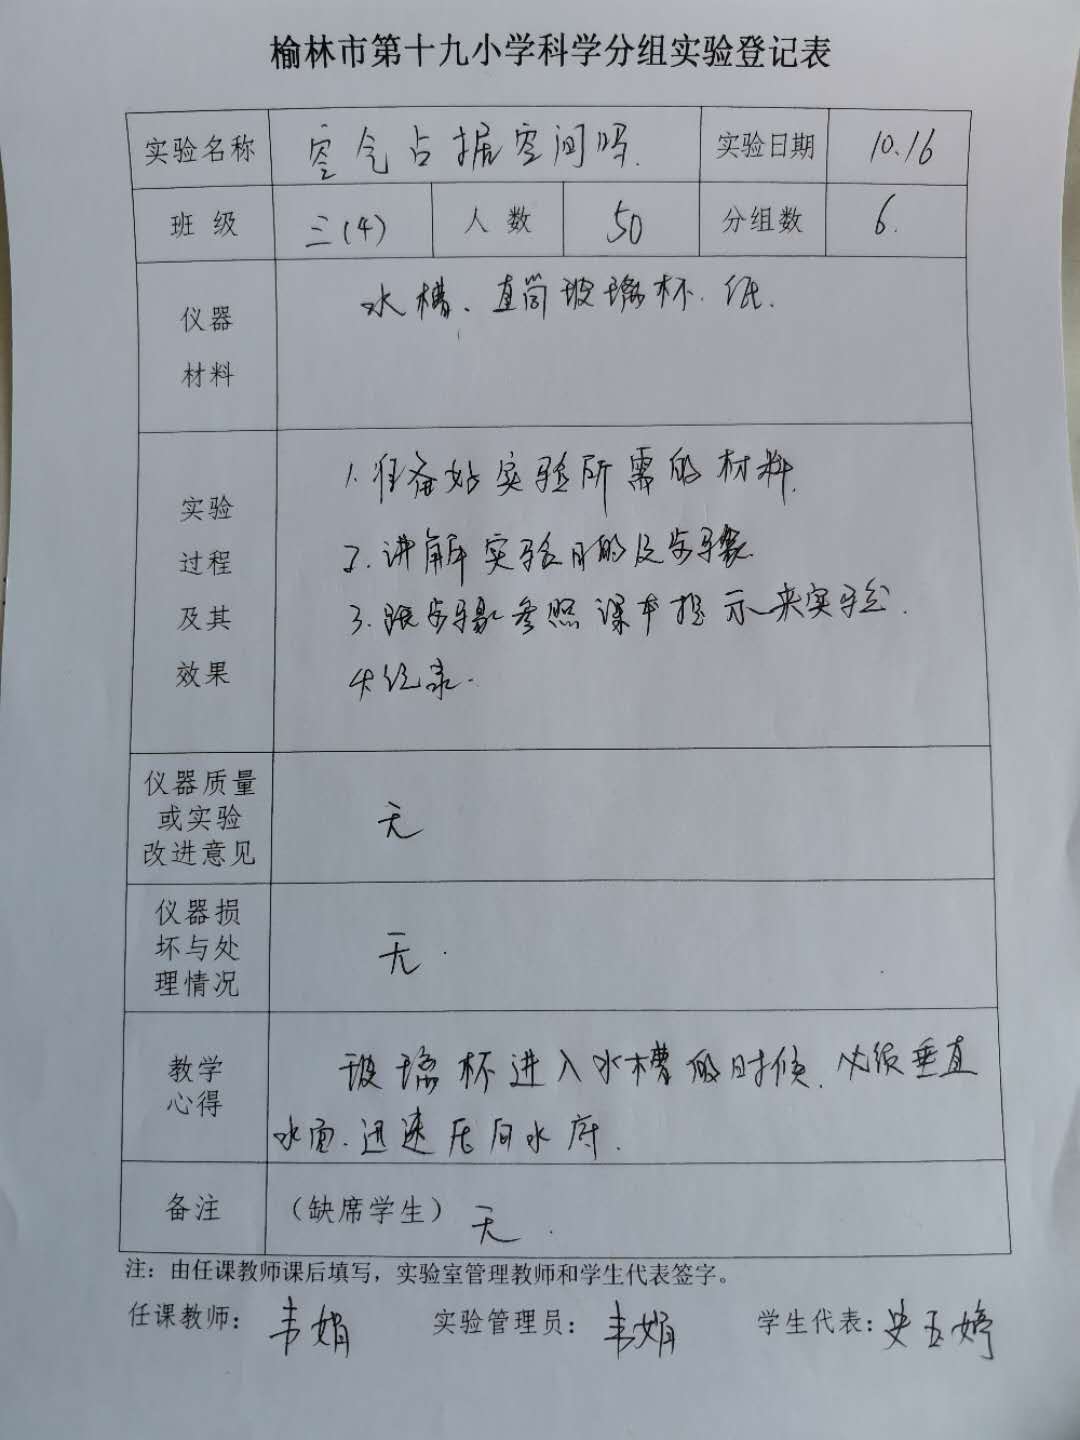 榆林市第十九小学科学分组实验登记表
实验名称 空气占据空间吗. 实验日期 10.16
班 级 三(4) 人 数 50 分组数 6.
仪器
材料
水槽、直筒玻璃杯、纸.
实验
过程
及其
效果
1.准备好实验所需的材料.
2.讲解实验目的及步骤.
3.跟步骤参照课本提示来实验.
4.记录.
仪器质量
或实验
改进意见
无
仪器损
坏与处
理情况
无.
教学
心得
玻璃杯进入水槽的时候,必须垂直
水面.迅速压向水底.
备注 (缺席学生) 无.
注：由任课教师课后填写，实验室管理教师和学生代表签字。
任课教师：韦娟 实验管理员：韦娟 学生代表：史玉婷